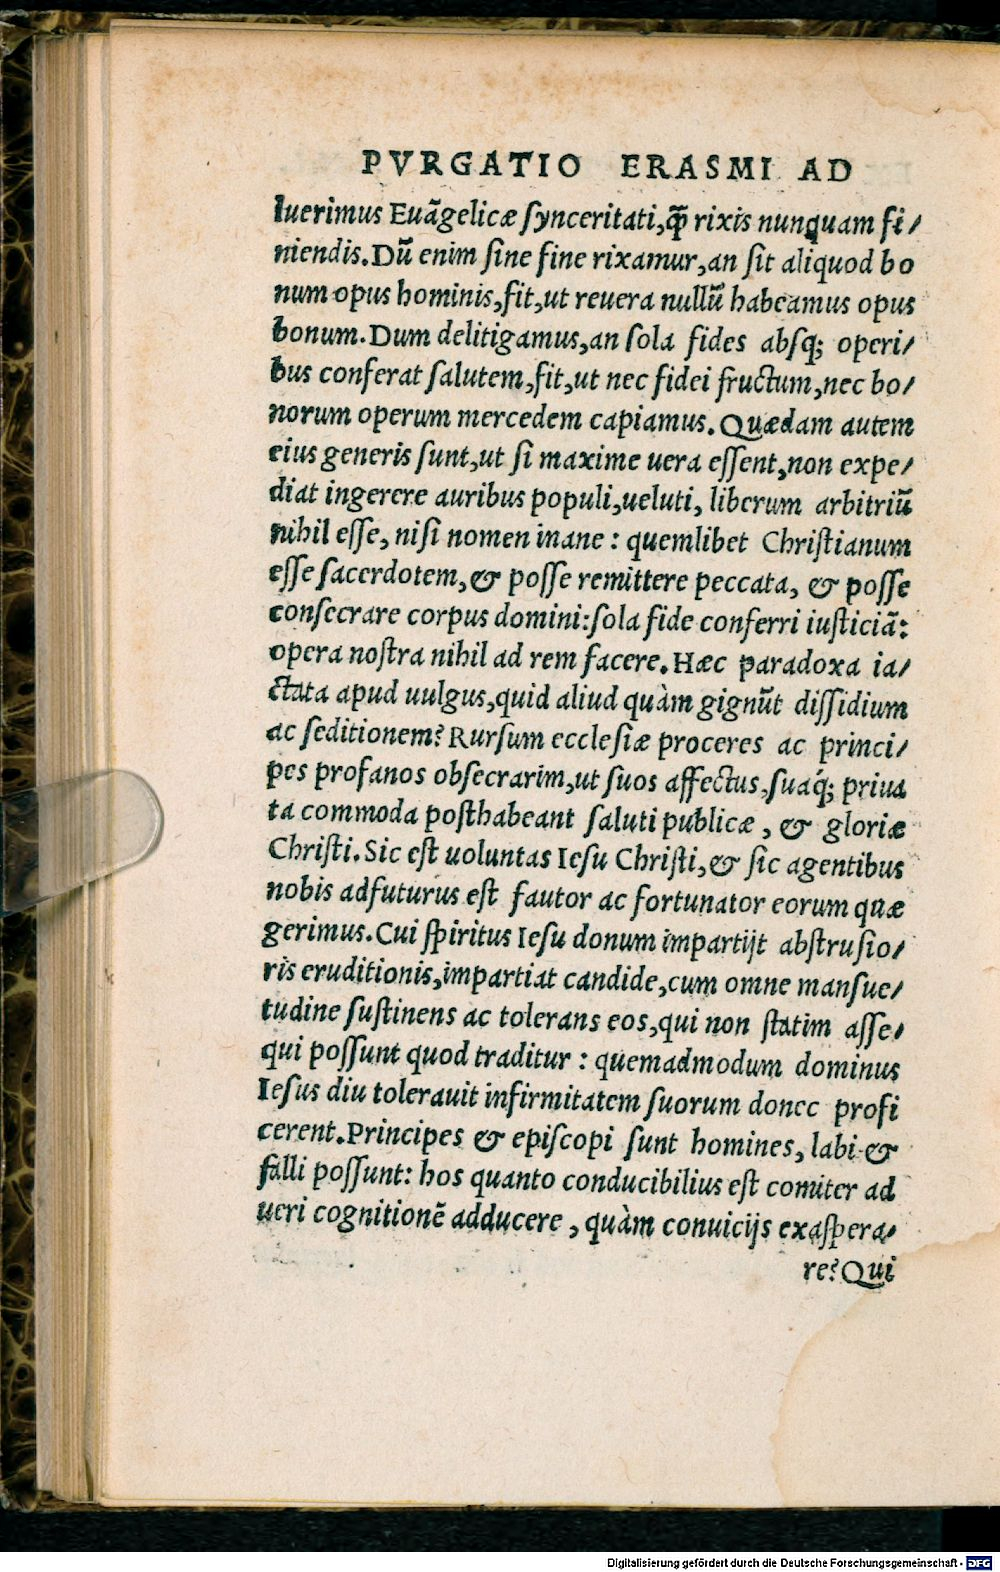 PVRGATIO ERASMI AD
luerimus Euãgelicæ synceritati, q̃ rixis nunquam fi/
niendis. Dũ enim sine fine rixamur, an sit aliquod bo
num opus hominis, fit, ut reuera nullũ habeamus opus
bonum. Dum delitigamus, an sola fides absq; operi/
bus conferat salutem, fit, ut nec fidei fructum, nec bo/
norum operum mercedem capiamus. Quædam autem
eius generis sunt, ut si maxime uera essent, non expe/
diat ingerere auribus populi, ueluti, liberum arbitriũ
nihil esse, nisi nomen inane : quemlibet Christianum
esse sacerdotem, & posse remittere peccata, & posse
consecrare corpus domini: sola fide conferri iusticiã:
opera nostra nihil ad rem facere. Hæc paradoxa ia/
ctata apud uulgus, quid aliud quàm gignũt dissidium
ac seditionem? Rursum ecclesiæ proceres ac princi/
pes profanos obsecrarim, ut suos affectus, suaq́; priua
ta commoda posthabeant saluti publicæ, & gloriæ
Christi. Sic est uoluntas Iesu Christi, & sic agentibus
nobis adfuturus est fautor ac fortunator eorum quæ
gerimus. Cui spiritus Iesu donum impartijt abstrusio/
ris eruditionis, impartiat candide, cum omne mansue/
tudine sustinens ac tolerans eos, qui non statim asse/
qui possunt quod traditur : quemadmodum dominus
Iesus diu tolerauit infirmitatem suorum donec profi
cerent. Principes & episcopi sunt homines, labi &
falli possunt: hos quanto conducibilius est comiter ad
ueri cognitionẽ adducere, quàm conuicijs exaspera/
re? Qui
Digitalisierung gefördert durch die Deutsche Forschungsgemeinschaft - DFG